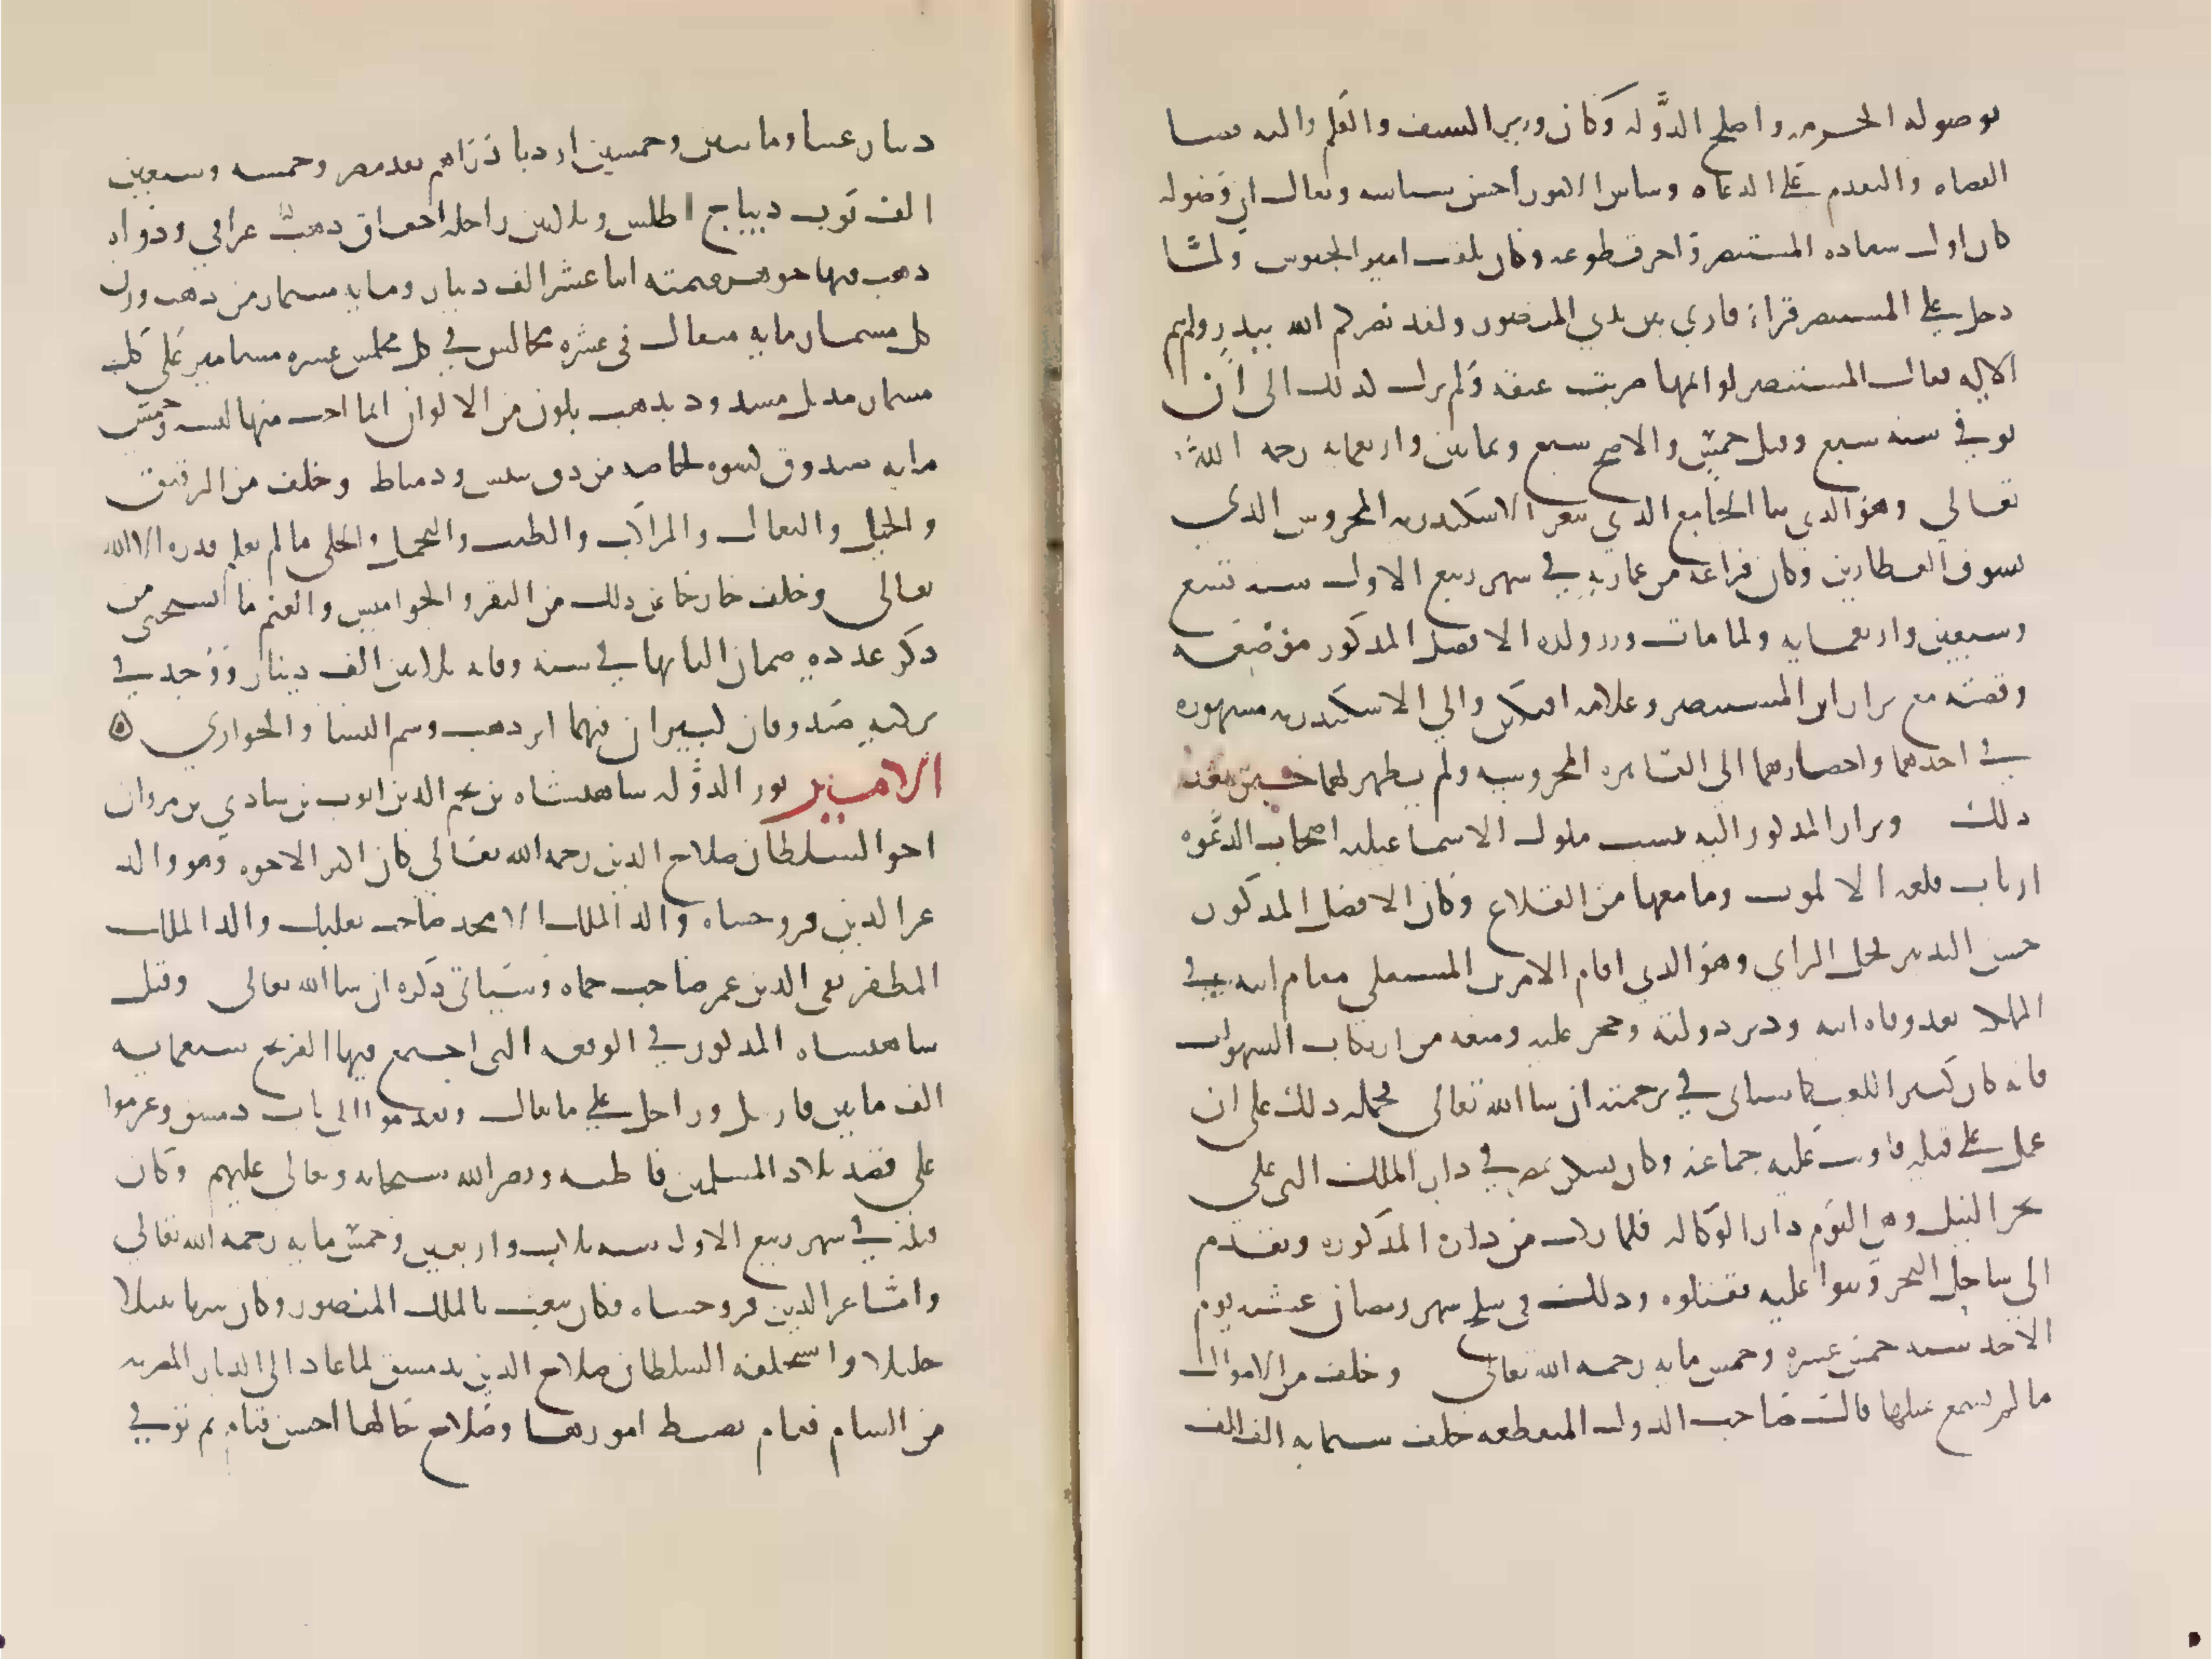 بوصوله الحرمه واصلح الدوله وكان وزير السيف والقلم واليه قضا
القضاه والتقدم على الدعاه وساس الامور احسن سياسه ويقال ان وصوله
كان اول سعاده المستنصر واخر قطوعه وكان يلقب امير الجيوش ولما
دخل على المستنصر قراء قاري بين يدي المنصور ولقد نصركم الله ببدر ولم يتم
الايه فقال المستنصر لو اتمها ضربت عنقه ولم يزل كذلك الى ان
توفي سنه سبع وقيل خمس والاصح سبع وثمانين واربعمايه رحمه الله
تعالي وهو الذي بنا الجامع الذي بثغر الاسكندريه المحروس الذي
بسوق العطارين وكان فراغه من عمارته في شهر ربيع الاول سنه تسع
وسبعين واربعمايه ولما مات وزر ولده الافضل المذكور موضعه
وقصته مع نزار ابن المستنصر وغلامه افتكين والي الاسكندريه مشهوره
في اخذهما واحضارهما الى القاهره المحروسه ولم يظهر لهما خبر بعد
ذلك ونزار المذكور اليه تنسب ملوك الاسماعيليه اصحاب الدعوه
ارباب قلعه الالموت وما معها من القلاع وكان الافضل المذكور
حسن التدبير فحل الراي وهو الذي اقام الامر بن المستعلي مقام ابيه في
الملك بعد وفاه ابيه ودبر دولته وحجر عليه ومنعه من ارتكاب الشهوات
فانه كان كثير اللعب كما سياتي في ترجمته ان شا الله تعالى فحمله ذلك على ان
عمل على قتله فاوثب عليه جماعه وكان يسكن بمصر في دار الملك التي على
بحر النيل وهي اليوم دار الوكاله فلما ركب من داره المذكوره وتقدم
الى ساحل البحر وثبوا عليه فقتلوه وذلك في سلخ شهر رمضان عشيه يوم
الاحد سنه خمس عشره وخمس مايه رحمه الله تعالى وخلف من الاموال
ما لم يسمع بمثلها قال صاحب الدول المنقطعه خلف ستمايه الف الف
دينار عينا ومايتين وخمسين اردبا دراهم نقد مصر وخمسه وسبعين
الف ثوب ديباج اطلس وثلاثين راحله احقاق ذهب عراقي ودواه
ذهب فيها جوهر قيمته اثنا عشر الف دينار ومايه مسمار من ذهب وزن
كل مسمار مايه مثقال في عشره مجالس في كل مجلس عشره مسامير على كل
مسمار منديل مشدود مذهب بلون من الالوان ايما احب منها لبسه وخمس
مايه صندوق كسوه لخاصه من دق تنيس ودمياط وخلف من الرقيق
والخيل والبغال والمراكب والطيب والتجمل والحلي ما لم يعلم قدره الا الله
تعالى وخلف خارجا عن ذلك من البقر والجواميس والغنم ما استحيي من
ذكر عدده ضمان البانها في سنه وفاته ثلاثين الف دينار ووجد في
تركته صندوقان كبيران فيهما ابر ذهب برسم النسا والجواري
الامير نور الدوله شاهنشاه بن نجم الدين ايوب بن شادي بن مروان
اخو السلطان صلاح الدين رحمه الله تعالي كان اكبر الاخوه وهو والد
عز الدين فروخشاه والد الملك الامجد صاحب بعلبك والد الملك
المظفر تقي الدين عمر صاحب حماه وسياتي ذكره ان شا الله تعالى وقتل
شاهنشاه المذكور في الوقعه التي اجتمع فيها الفرنج سبعمايه
الف ما بين فارس وراجل على ما يقال وتقدموا الى باب دمشق وعزموا
على قصد بلاد المسلمين قاطبه ونصر الله سبحانه وتعالى عليهم وكان
قتله في شهر ربيع الاول سنه ثلاث واربعين وخمس مايه رحمه الله تعالي
واما عز الدين فروخشاه فكان ينعت بالملك المنصور وكان سريا نبيلا
جليلا واستخلفه السلطان صلاح الدين بدمشق لما عاد الى الديار المصريه
من الشام فقام بضبط امورها وصلاح حالها احسن قيام ثم توفي